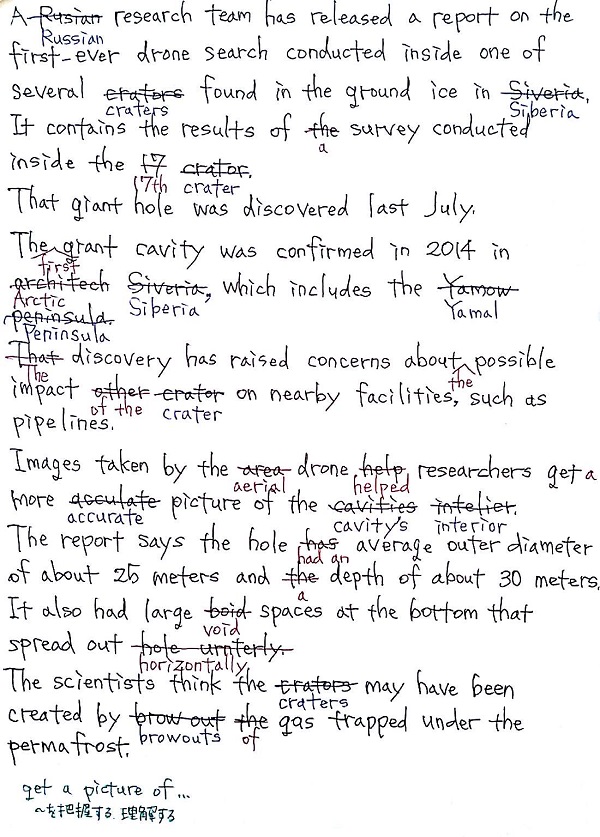 A Rusian research team has released a report on the
Russian
first-ever drone search conducted inside one of
several crators found in the ground ice in Siveria.
craters Siberia
It contains the results of the survey conducted
a
inside the 17 crator.
17th crater
That giant hole was discovered last July.
The giant cavity was confirmed in 2014 in
first
architech Siveria, which includes the Yamow
Arctic Siberia Yamal
peninsula.
Peninsula
That discovery has raised concerns about possible
The the
impact other crator on nearby facilities, such as
of the crater
pipelines.
Images taken by the area drone help researchers get a
aerial helped
more acculate picture of the cavities intelier.
accurate cavity's interior
The report says the hole has average outer diameter
had an
of about 25 meters and the depth of about 30 meters.
a
It also had large boid spaces at the bottom that
void
spread out hole urnterly.
horizontally
The scientists think the crators may have been
craters
created by brow out the gas trapped under the
browouts of
permafrost.
get a picture of...
～を把握する、理解する